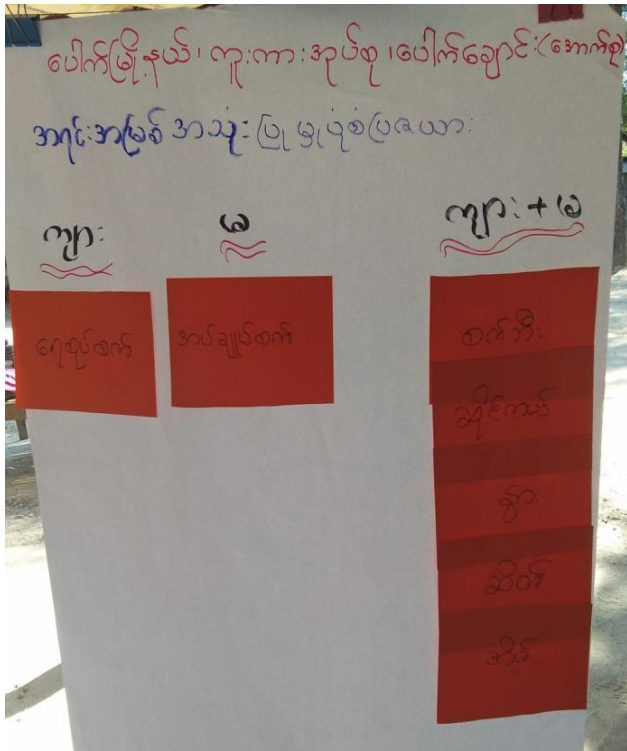 ပေါက်မြို့နယ်၊ ကူးကားအုပ်စု၊ ပေါက်ချောင်း(အောက်စု)
အရင်းအမြစ် အသုံးပြုမှုပုံစံပြဇယား
ကျား
မ
ကျား + မ
ရေစုပ်စက်
အပ်ချုပ်စက်
စက်ဘီး
ဆိုင်ကယ်
နွား
ဆိတ်
အိမ်